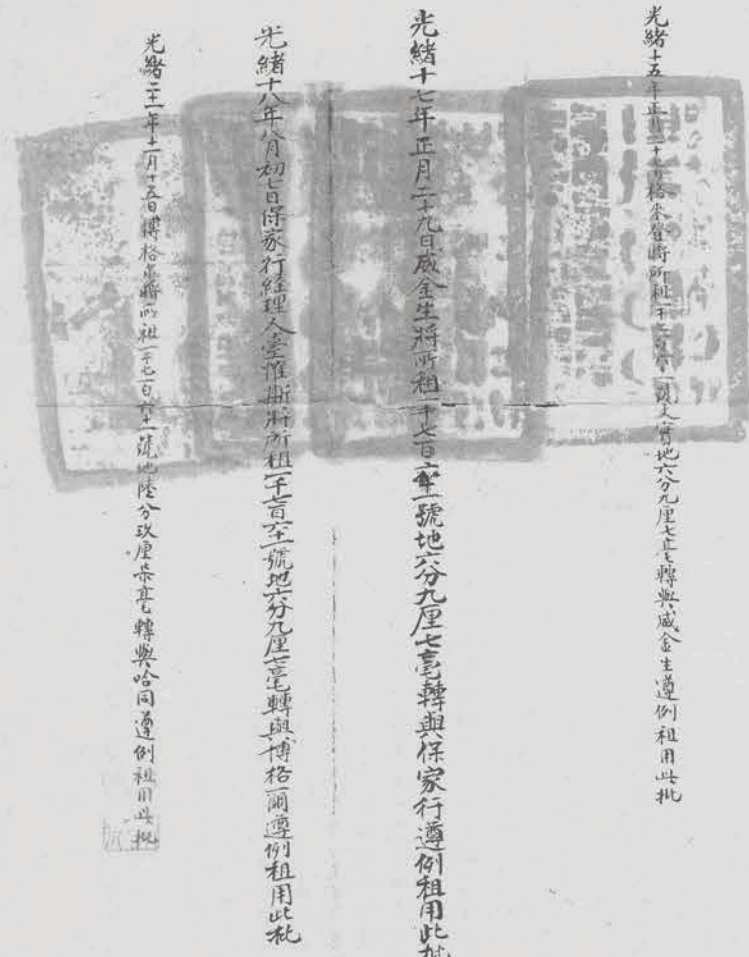 光緒十五年正月二十七日格來登將所租一千七百六十一號丈實地六分九厘七毫轉與威金生遵例租用此批
光緒十七年正月二十九日威金生將所租一千七百六十一號地六分九厘七毫轉與保家行遵例租用此批
光緒十八年八月初七日保家行經理人壹惟斯將所租一千七百六十一號地六分九厘七毫轉與博格爾遵例租用此批
光緒二十一年十二月十五日博格爾將所租一千七百六十一號地陸分玖厘柒毫轉與哈同遵例租用此批